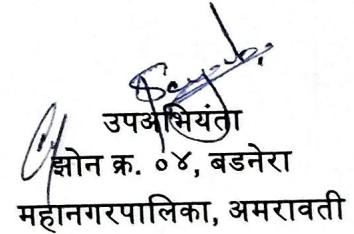 उपअभियंता
झोन क्र. ०४, बडनेरा
महानगरपालिका, अमरावती